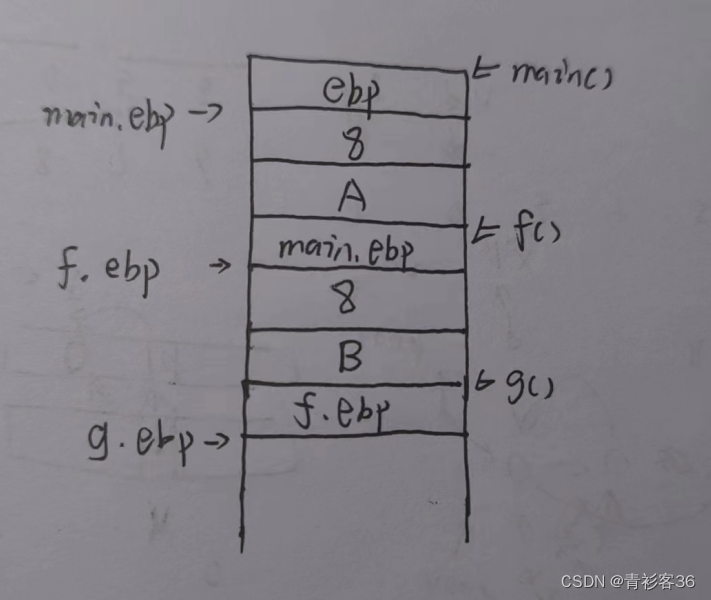 ebp
← main()
main.ebp →
8
A
← f()
main.ebp
f.ebp →
8
B
← g()
f.ebp
g.ebp →
CSDN @青衫客36